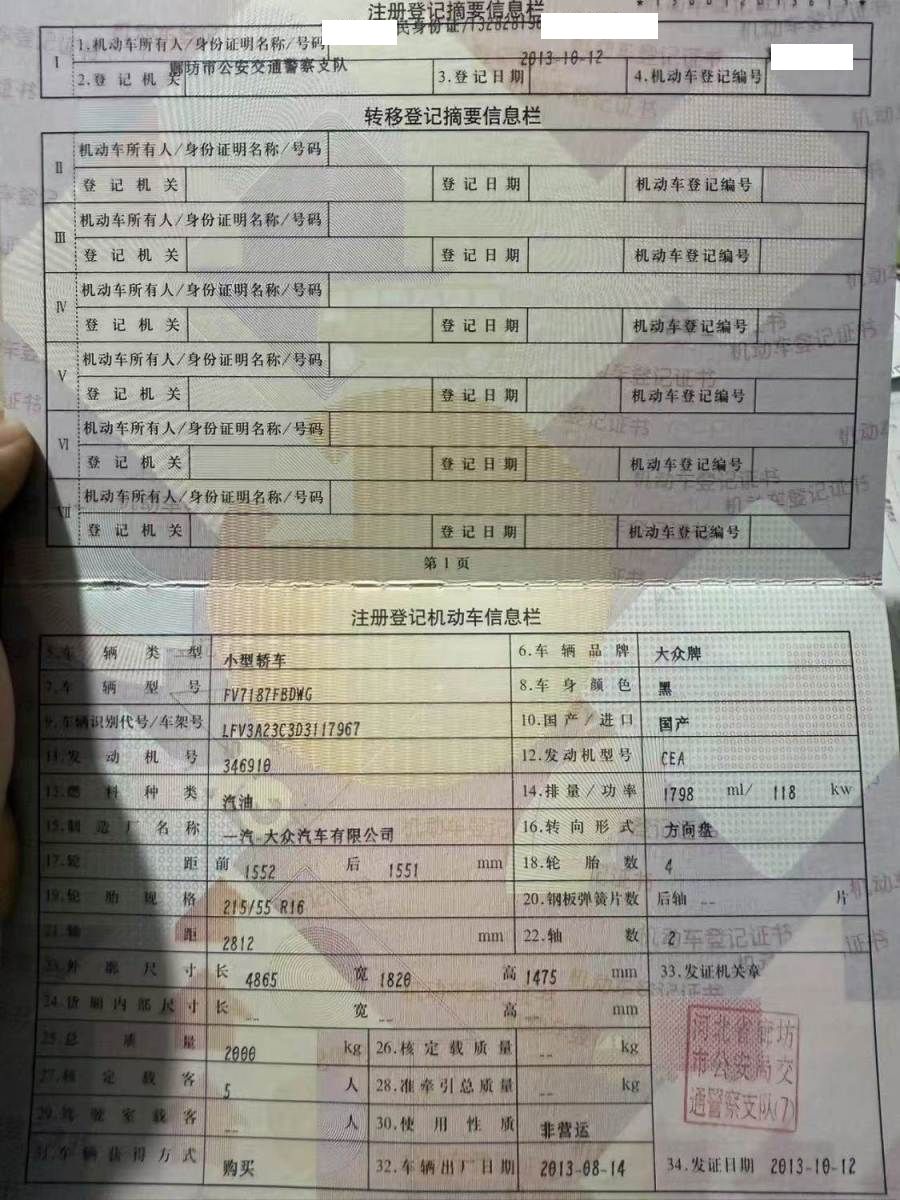 注册登记摘要信息栏
I 1.机动车所有人/身份证明名称/号码 民身份证/
2.登记机关 廊坊市公安交通警察支队 3.登记日期 2013-10-12 4.机动车登记编号
转移登记摘要信息栏
II 机动车所有人/身份证明名称/号码
登记机关 登记日期 机动车登记编号
III 机动车所有人/身份证明名称/号码
登记机关 登记日期 机动车登记编号
IV 机动车所有人/身份证明名称/号码
登记机关 登记日期 机动车登记编号
V 机动车所有人/身份证明名称/号码
登记机关 登记日期 机动车登记编号
VI 机动车所有人/身份证明名称/号码
登记机关 登记日期 机动车登记编号
VII 机动车所有人/身份证明名称/号码
登记机关 登记日期 机动车登记编号
第1页
注册登记机动车信息栏
5.车辆类型 小型轿车 6.车辆品牌 大众牌
7.车辆型号 FV7187FBDWG 8.车身颜色 黑
9.车辆识别代号/车架号 LFV3A23C3D3117967 10.国产/进口 国产
11.发动机号 346910 12.发动机型号 CEA
13.燃料种类 汽油 14.排量/功率 1798 ml/ 118 kw
15.制造厂名称 一汽-大众汽车有限公司 16.转向形式 方向盘
17.轮距 前 1552 后 1551 mm 18.轮胎数 4
19.轮胎规格 215/55 R16 20.钢板弹簧片数 后轴 -- 片
21.轴距 2812 mm 22.轴数 2
23.外廓尺寸 长 4865 宽 1820 高 1475 mm 33.发证机关章
24.货厢内部尺寸 长 -- 宽 -- 高 -- mm
25.总质量 2000 kg 26.核定载质量 -- kg
27.核定载客 5 人 28.准牵引总质量 -- kg
29.驾驶室载客 -- 人 30.使用性质 非营运
31.车辆获得方式 购买 32.车辆出厂日期 2013-08-14 34.发证日期 2013-10-12
河北省廊坊
市公安局交
通警察支队(7)